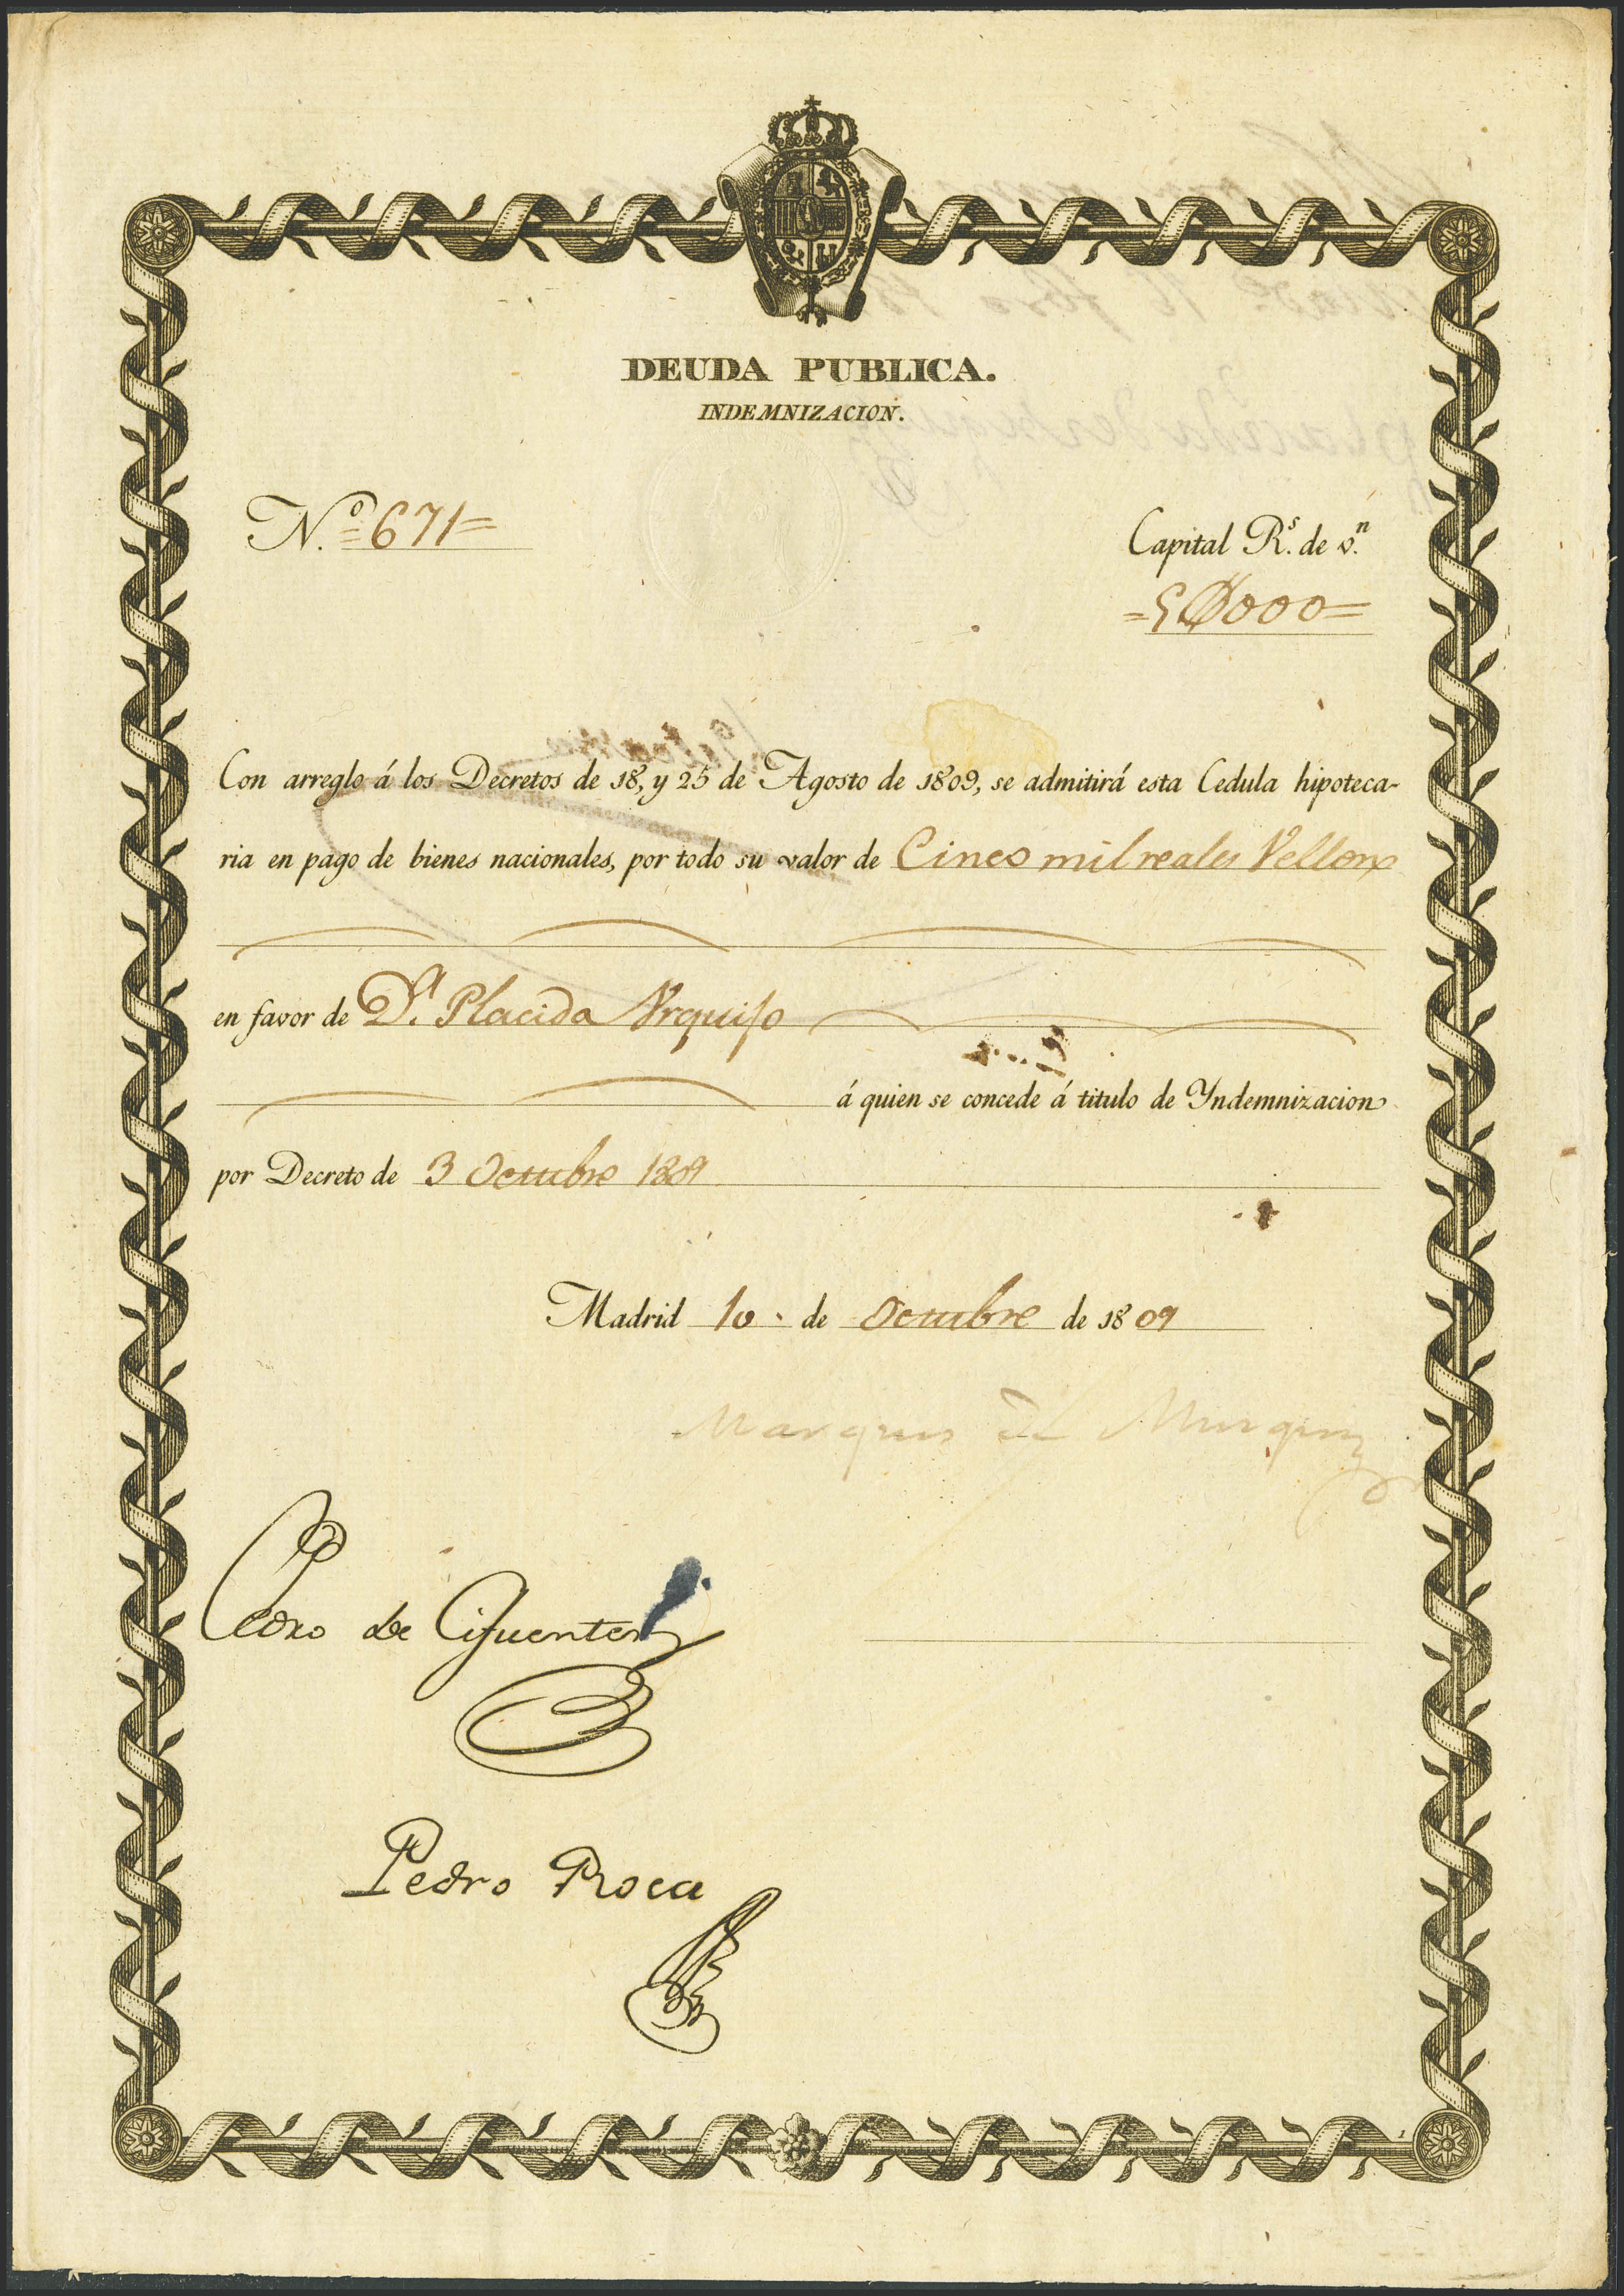 DEUDA PUBLICA.
INDEMNIZACION.
N.º =671=
Capital R.ˢ de v.ⁿ
=5⨎000=
Con arreglo á los Decretos de 18, y 25 de Agosto de 1809, se admitirá esta Cedula hipoteca-
ria en pago de bienes nacionales, por todo su valor de Cinco mil reales Vellon
en favor de D.ª Placida Vrquiso
á quien se concede á titulo de Yndemnizacion
por Decreto de 3 Octubre 1809
Madrid 10 de Octubre de 1809
Marques
Pedro de Cifuentes
Pedro Roca